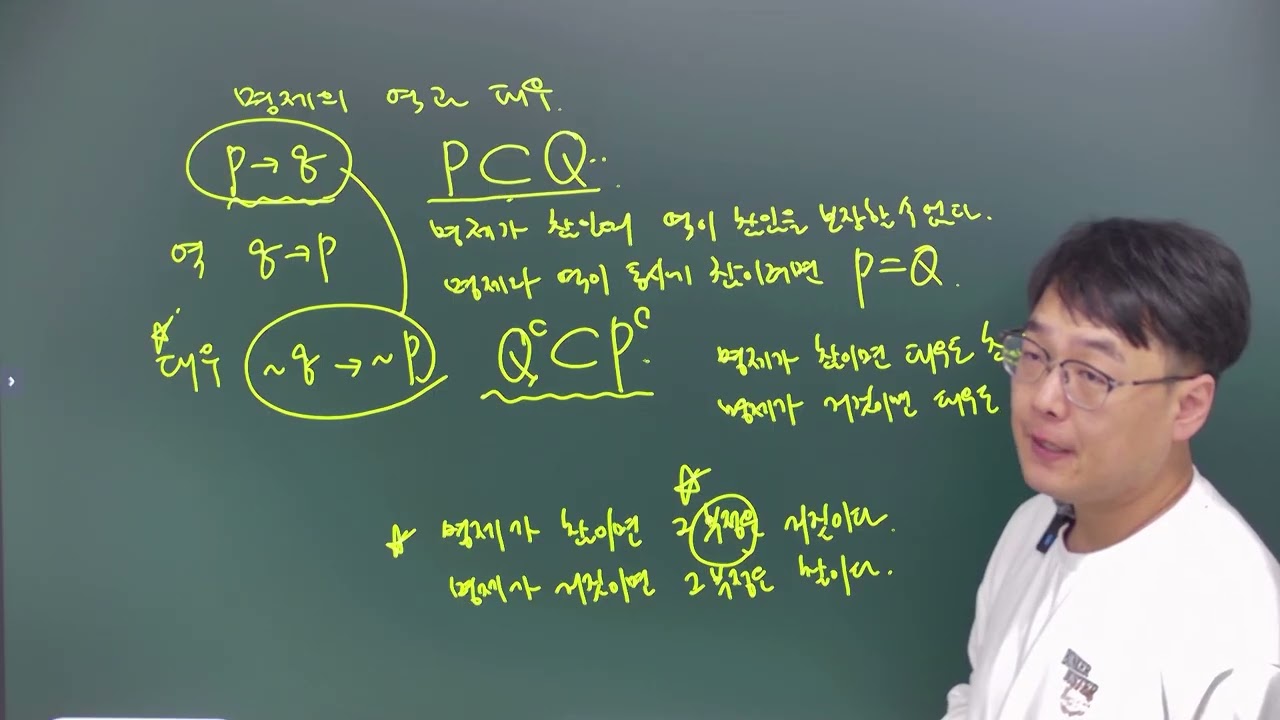 명제의 역과 대우.
p → q P ⊂ Q
명제가 참일때 역이 참임을 보장할 수 없다.
역 q → p
명제와 역이 동시에 참이려면 P = Q.
대우 ~q → ~p Q^C ⊂ P^C.
명제가 참이면 대우도
명제가 거짓이면 대우도
☆ 명제가 참이면 그 부정은 거짓이다.
명제가 거짓이면 그 부정은 참이다.